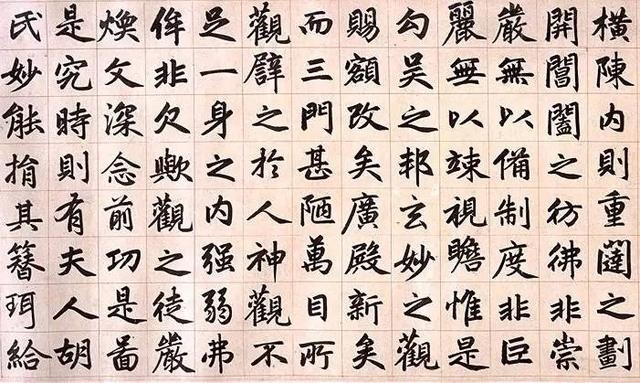 橫陳内則重闥之劃
開閶闔之彷彿非崇
嚴無以備制度非巨
麗無以竦視瞻惟是
勾吳之邦玄妙之觀
賜額改矣廣殿新矣
而三門甚陋萬目所
觀譬之於人神觀不
足一身之内强弱弗
侔非欠歟觀之徒嚴
煥文深念前功是啚
是究時則有夫人胡
氏妙能捐其簪珥給